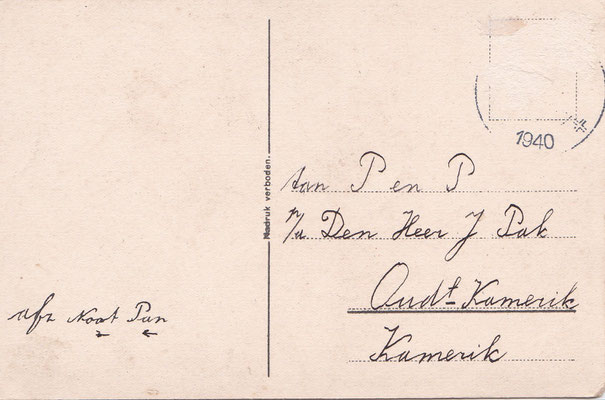 1940
Nadruk verboden.
aan P en P
p/a Den Heer J Pak
Oudt Kamerik
Kamerik
afz Noot Pan